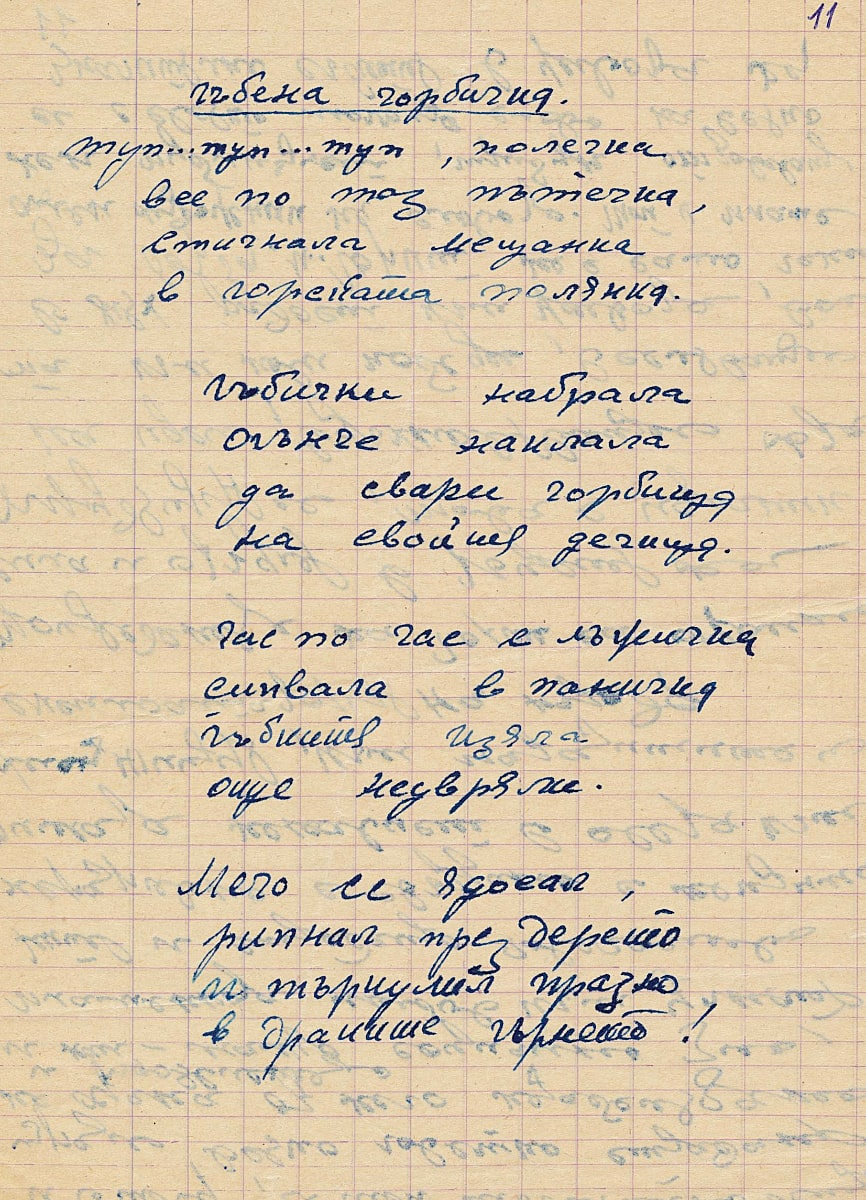 11
гъбена чорбичка.
туп...туп...туп, полегка
все по таз пътечка,
стигнала мецанка
в горската полянка.
гъбички набрала
огънче наклала
да свари чорбица
на свойте дечица.
час по час с лъжичка
сипвала в паничка
гъбките изяла
още неуврели.
Мечо се ядосал,
рипнал през дерето
и търкулил празно
в драките гърнето!